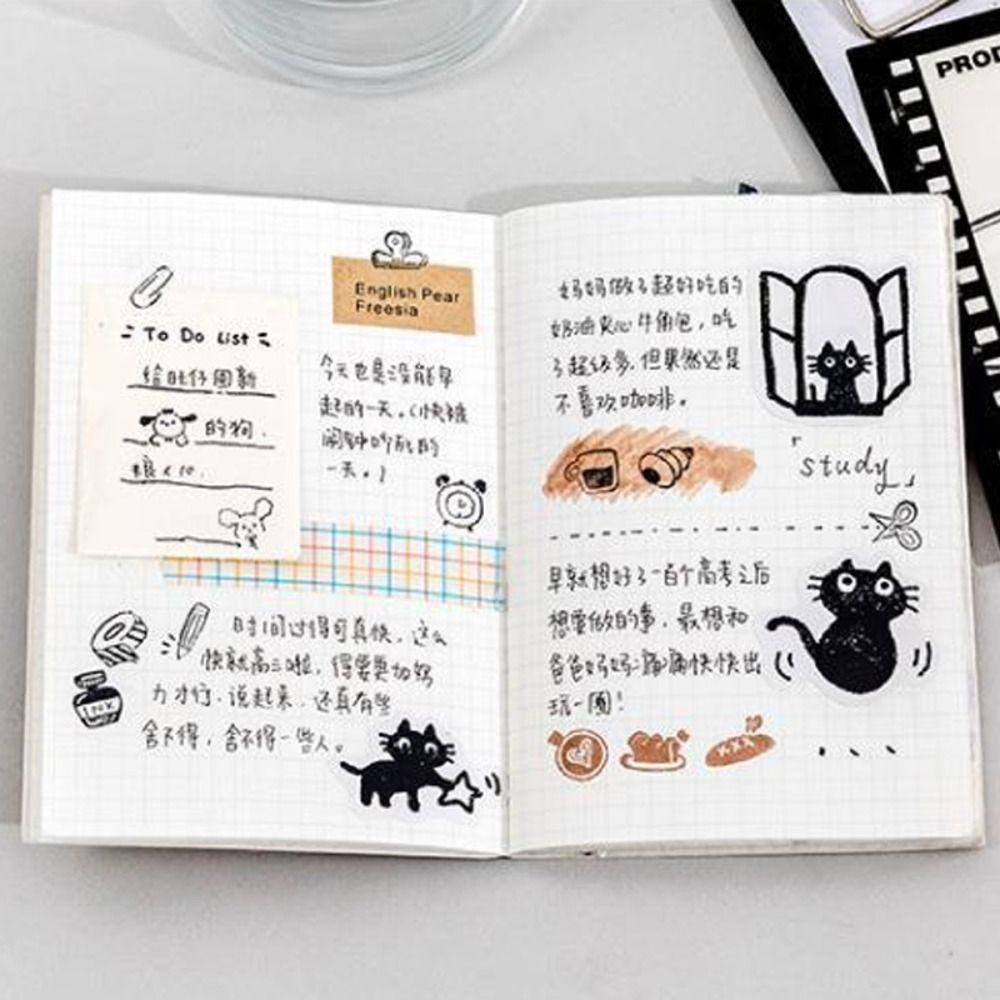 To Do List
给旺仔囤新
的狗
粮 x 10.
English Pear
Freesia
今天也是没能早
起的一天。(快被
闹钟吵死的
一天。)
时间过得可真快，这么
快就高三啦，得要更加努
力才行，说起来，还真有些
舍不得，舍不得一些人。
INK
妈妈做了超好吃的
奶油夹心牛角包，吃
了超级多，但果然还是
不喜欢咖啡。
「study」
早就想好了一百个高考之后
想要做的事，最想和
爸爸妈妈痛痛快快出
玩一圈！
PROD